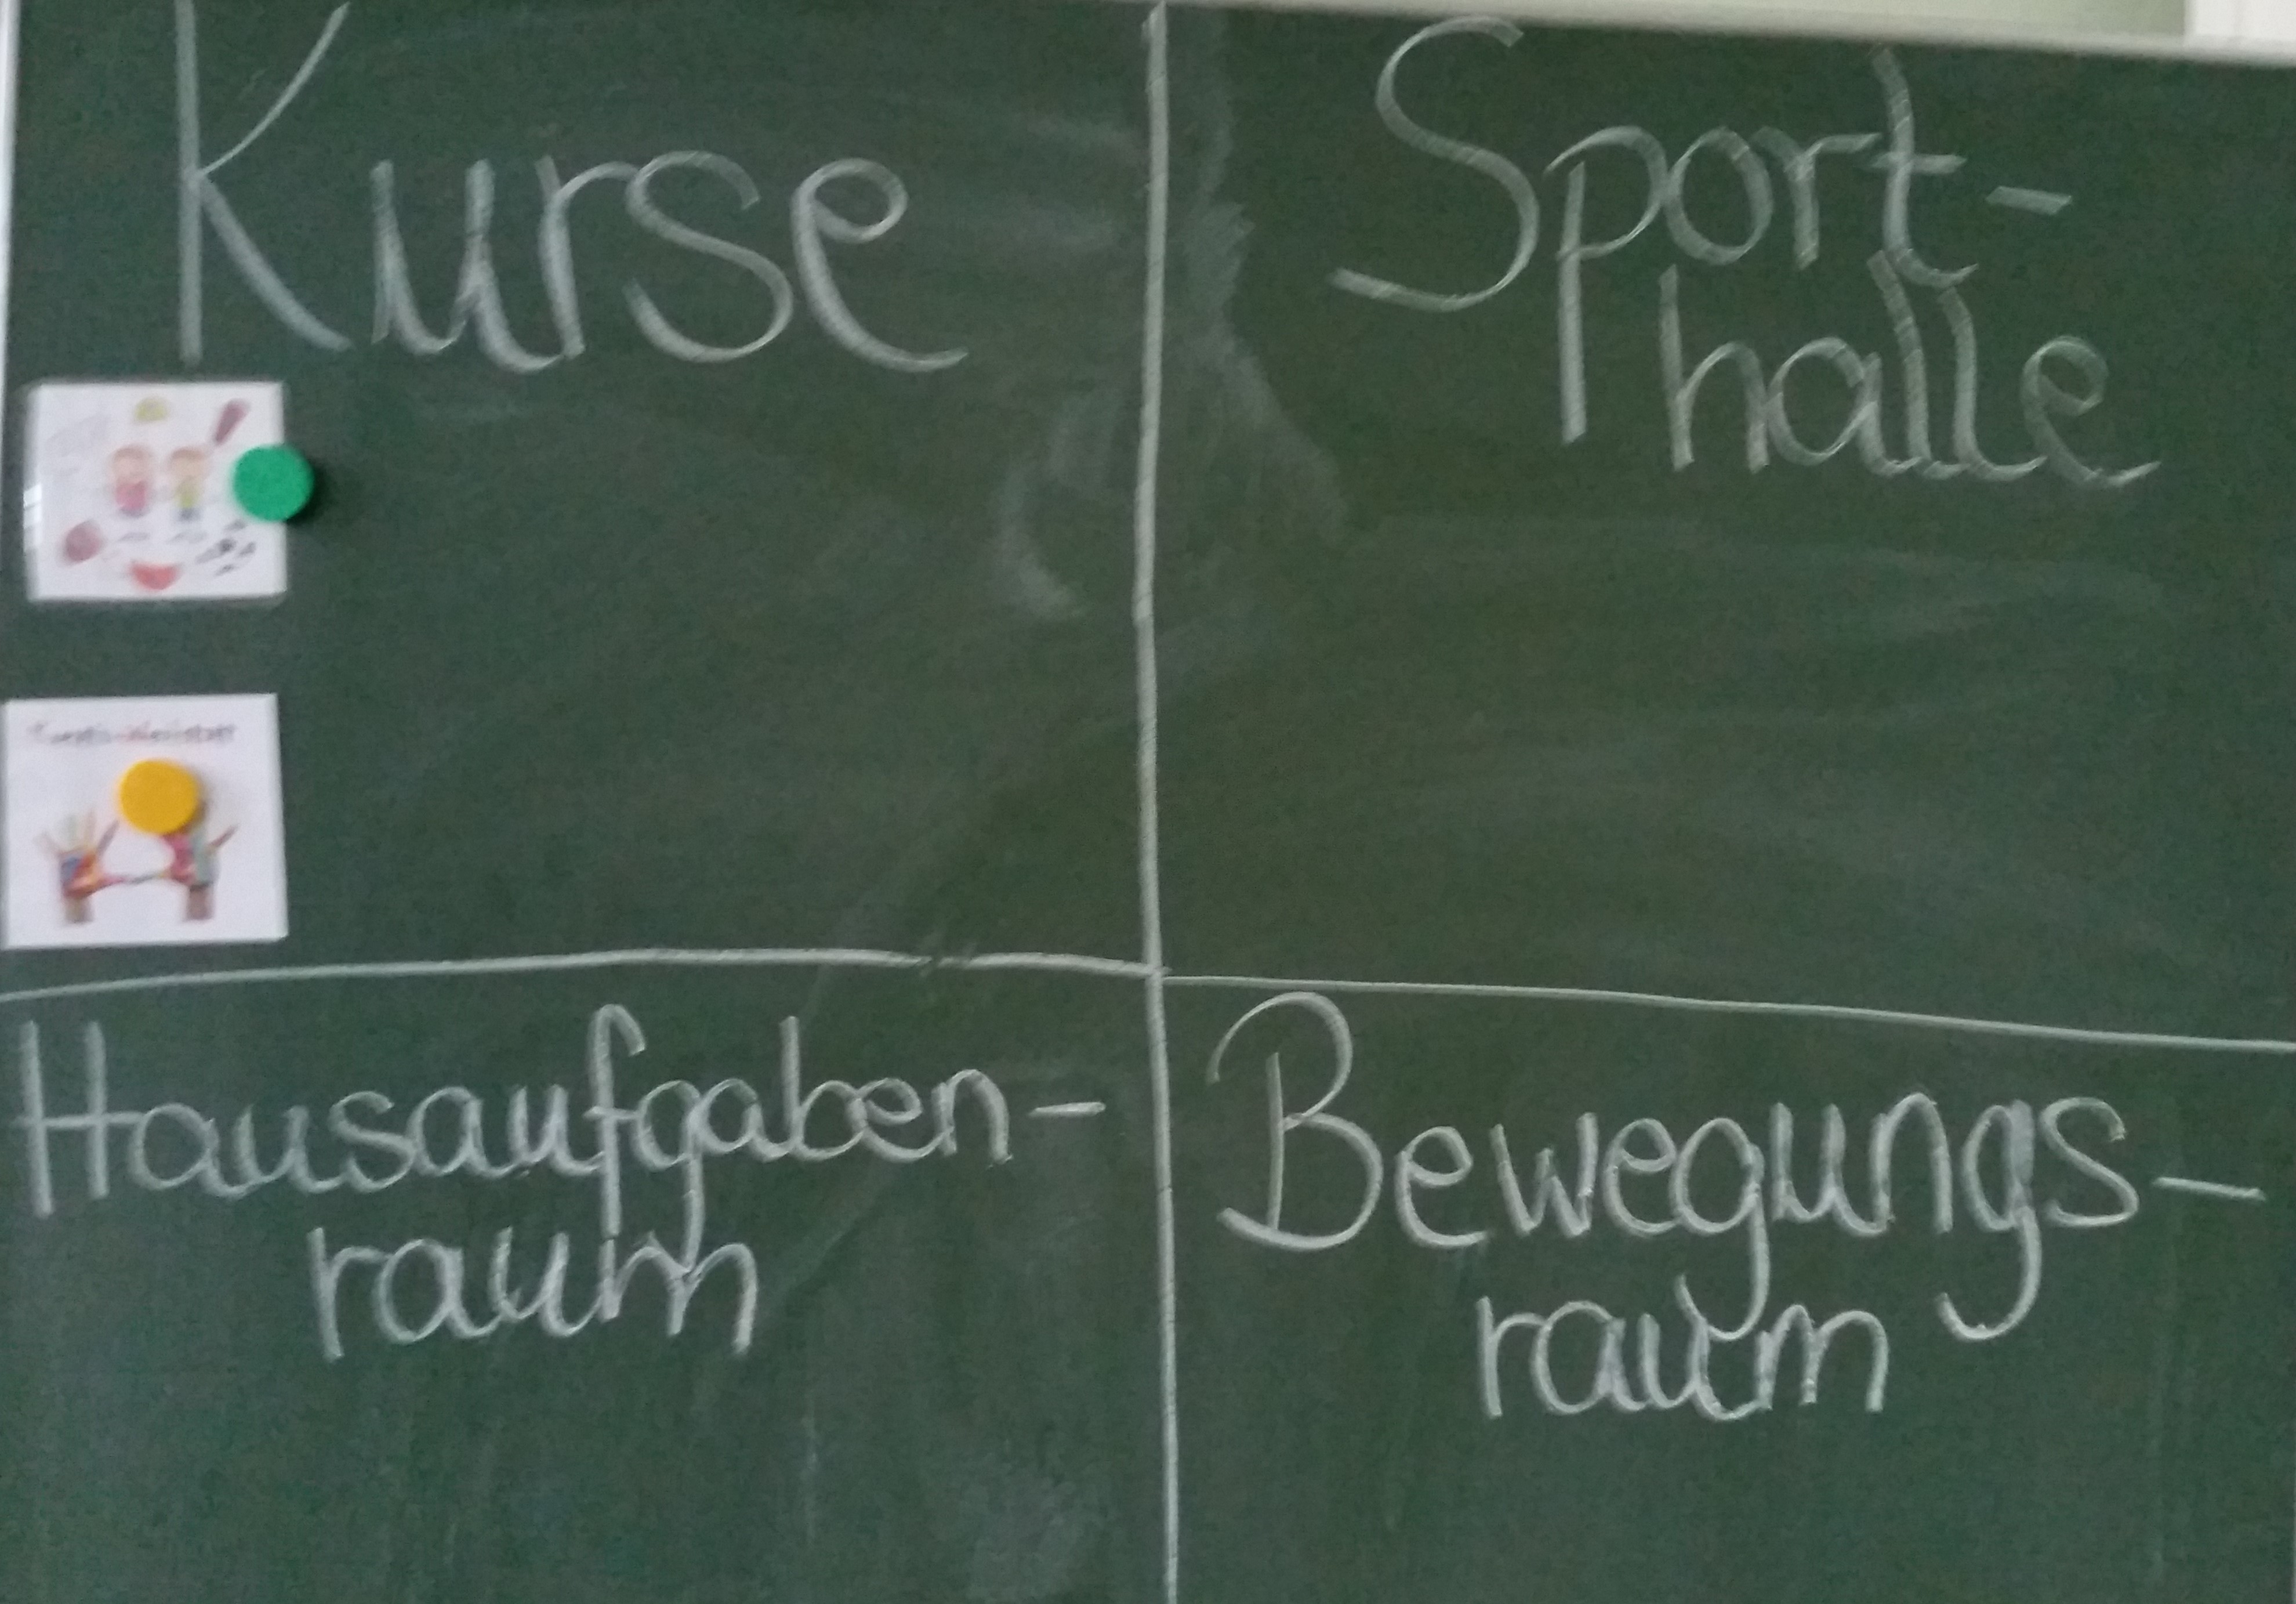 Kurse
Sport-
halle
Hausaufgaben-
raum
Bewegungs-
raum